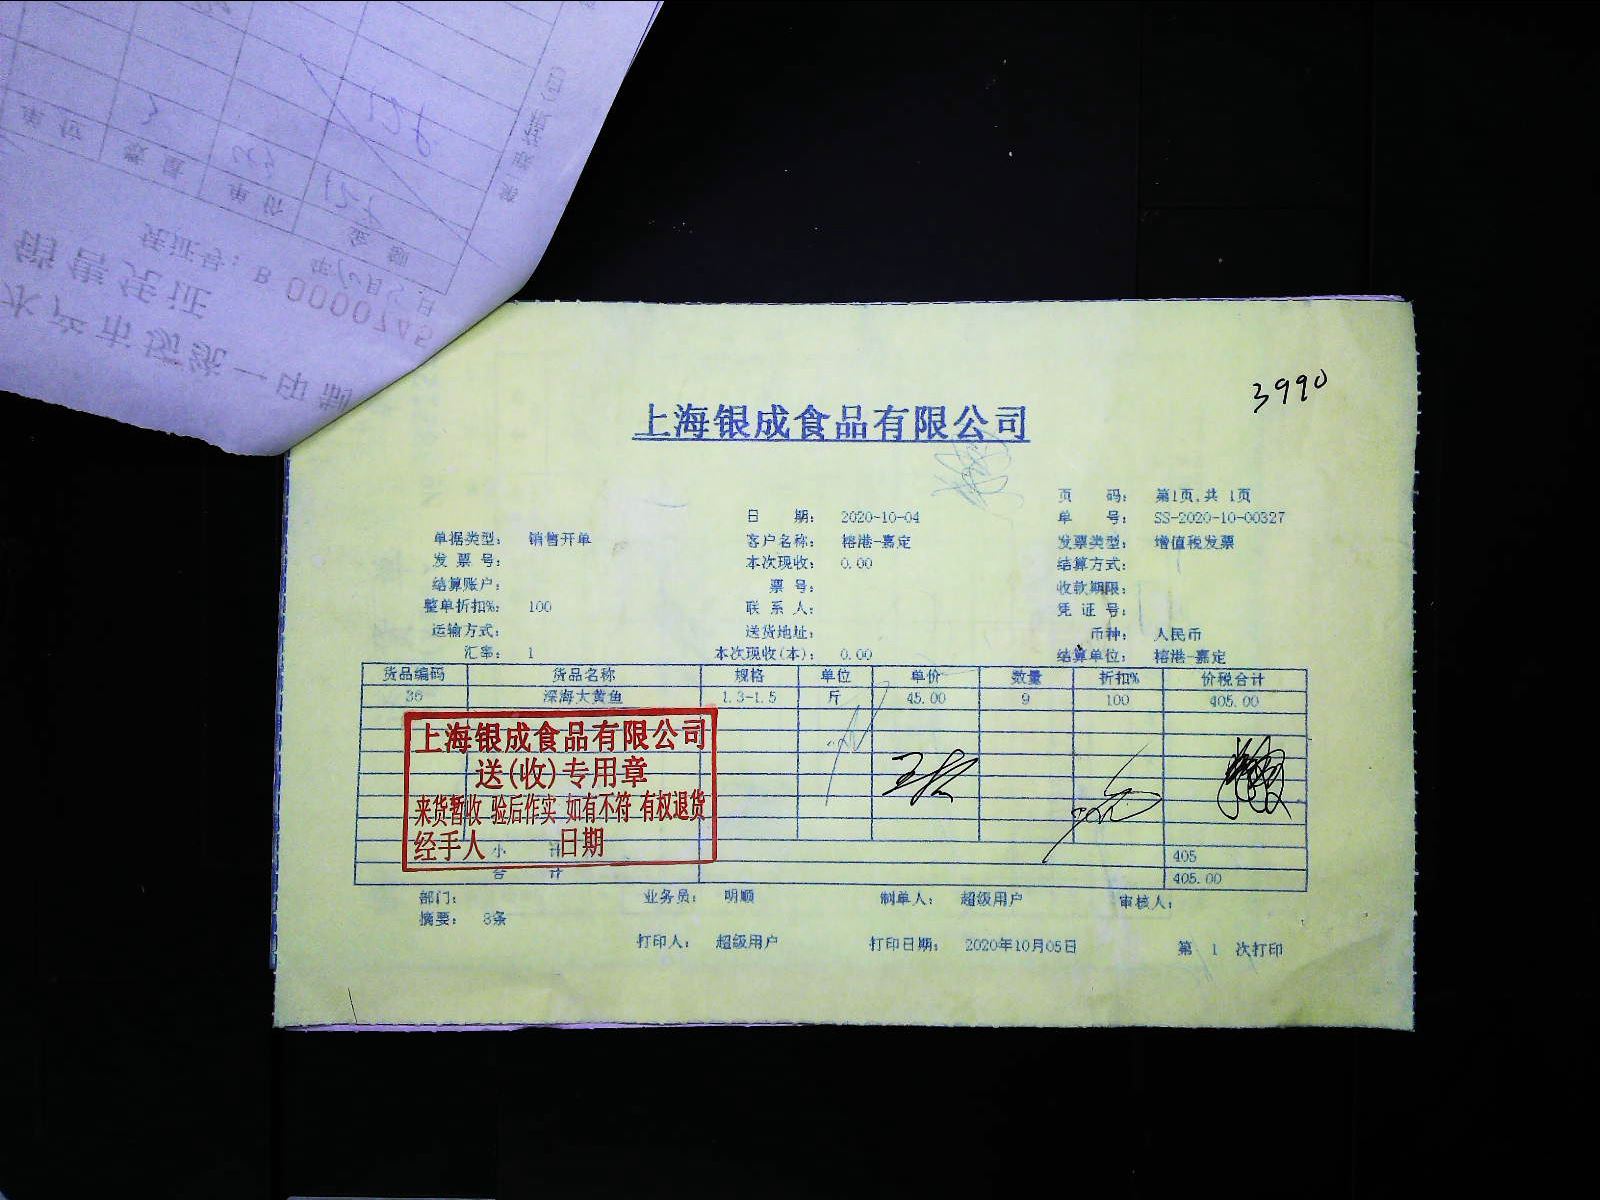 3990
上海银成食品有限公司
页 码： 第1页,共 1页
日 期： 2020-10-04 单 号： SS-2020-10-00327
单据类型： 销售开单 客户名称： 榕港-嘉定 发票类型： 增值税发票
发 票 号： 本次现收： 0.00 结算方式：
结算账户： 票 号： 收款期限：
整单折扣%： 100 联 系 人： 凭 证 号：
运输方式： 送货地址： 币种： 人民币
汇率： 1 本次现收(本)： 0.00 结算单位： 榕港-嘉定
货品编码 货品名称 规格 单位 单价 数量 折扣% 价税合计
36 深海大黄鱼 1.3-1.5 斤 45.00 9 100 405.00
上海银成食品有限公司
送(收)专用章
来货暂收 验后作实 如有不符 有权退货
经手人 日期
小 计 405
合 计 405.00
部门： 业务员： 明顺 制单人： 超级用户 审核人：
摘要： 3条
打印人： 超级用户 打印日期： 2020年10月05日 第 1 次打印
水产市场统一印制
销售凭证
凭证号：B 0000745
单位 数量 单价 金额